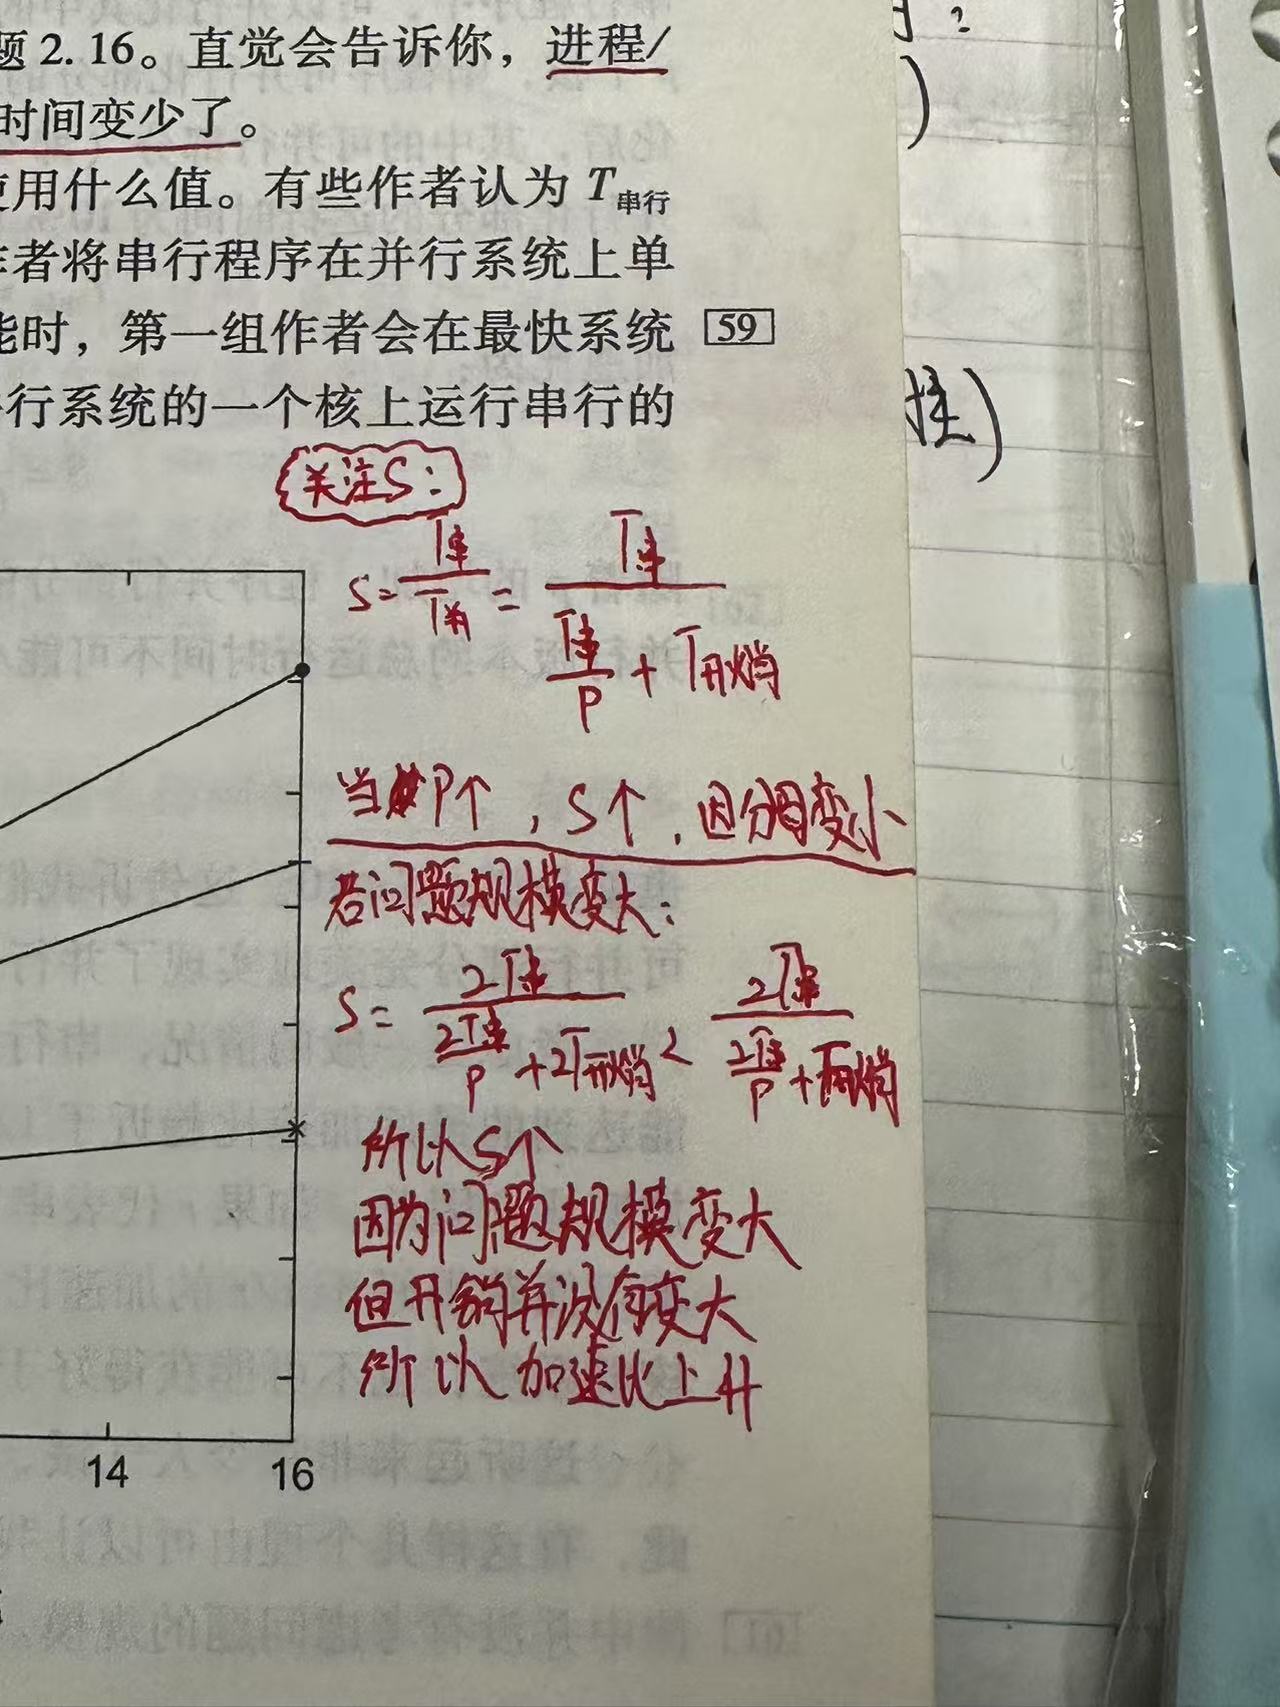 题2.16。直觉会告诉你，进程/
时间变少了。
使用什么值。有些作者认为 T串行
作者将串行程序在并行系统上单
能时，第一组作者会在最快系统 59
行系统的一个核上运行串行的
关注S：
S = T串 / T并 = T串 / (T串/P + T开销)
当P↑，S↑，因分母变小
若问题规模变大：
S = 2T串 / (2T串/P + 2T开销) < 2T串 / (2T串/P + T开销)
所以S↑
因为问题规模变大
但开销并没有变大
所以加速比上升
14 16